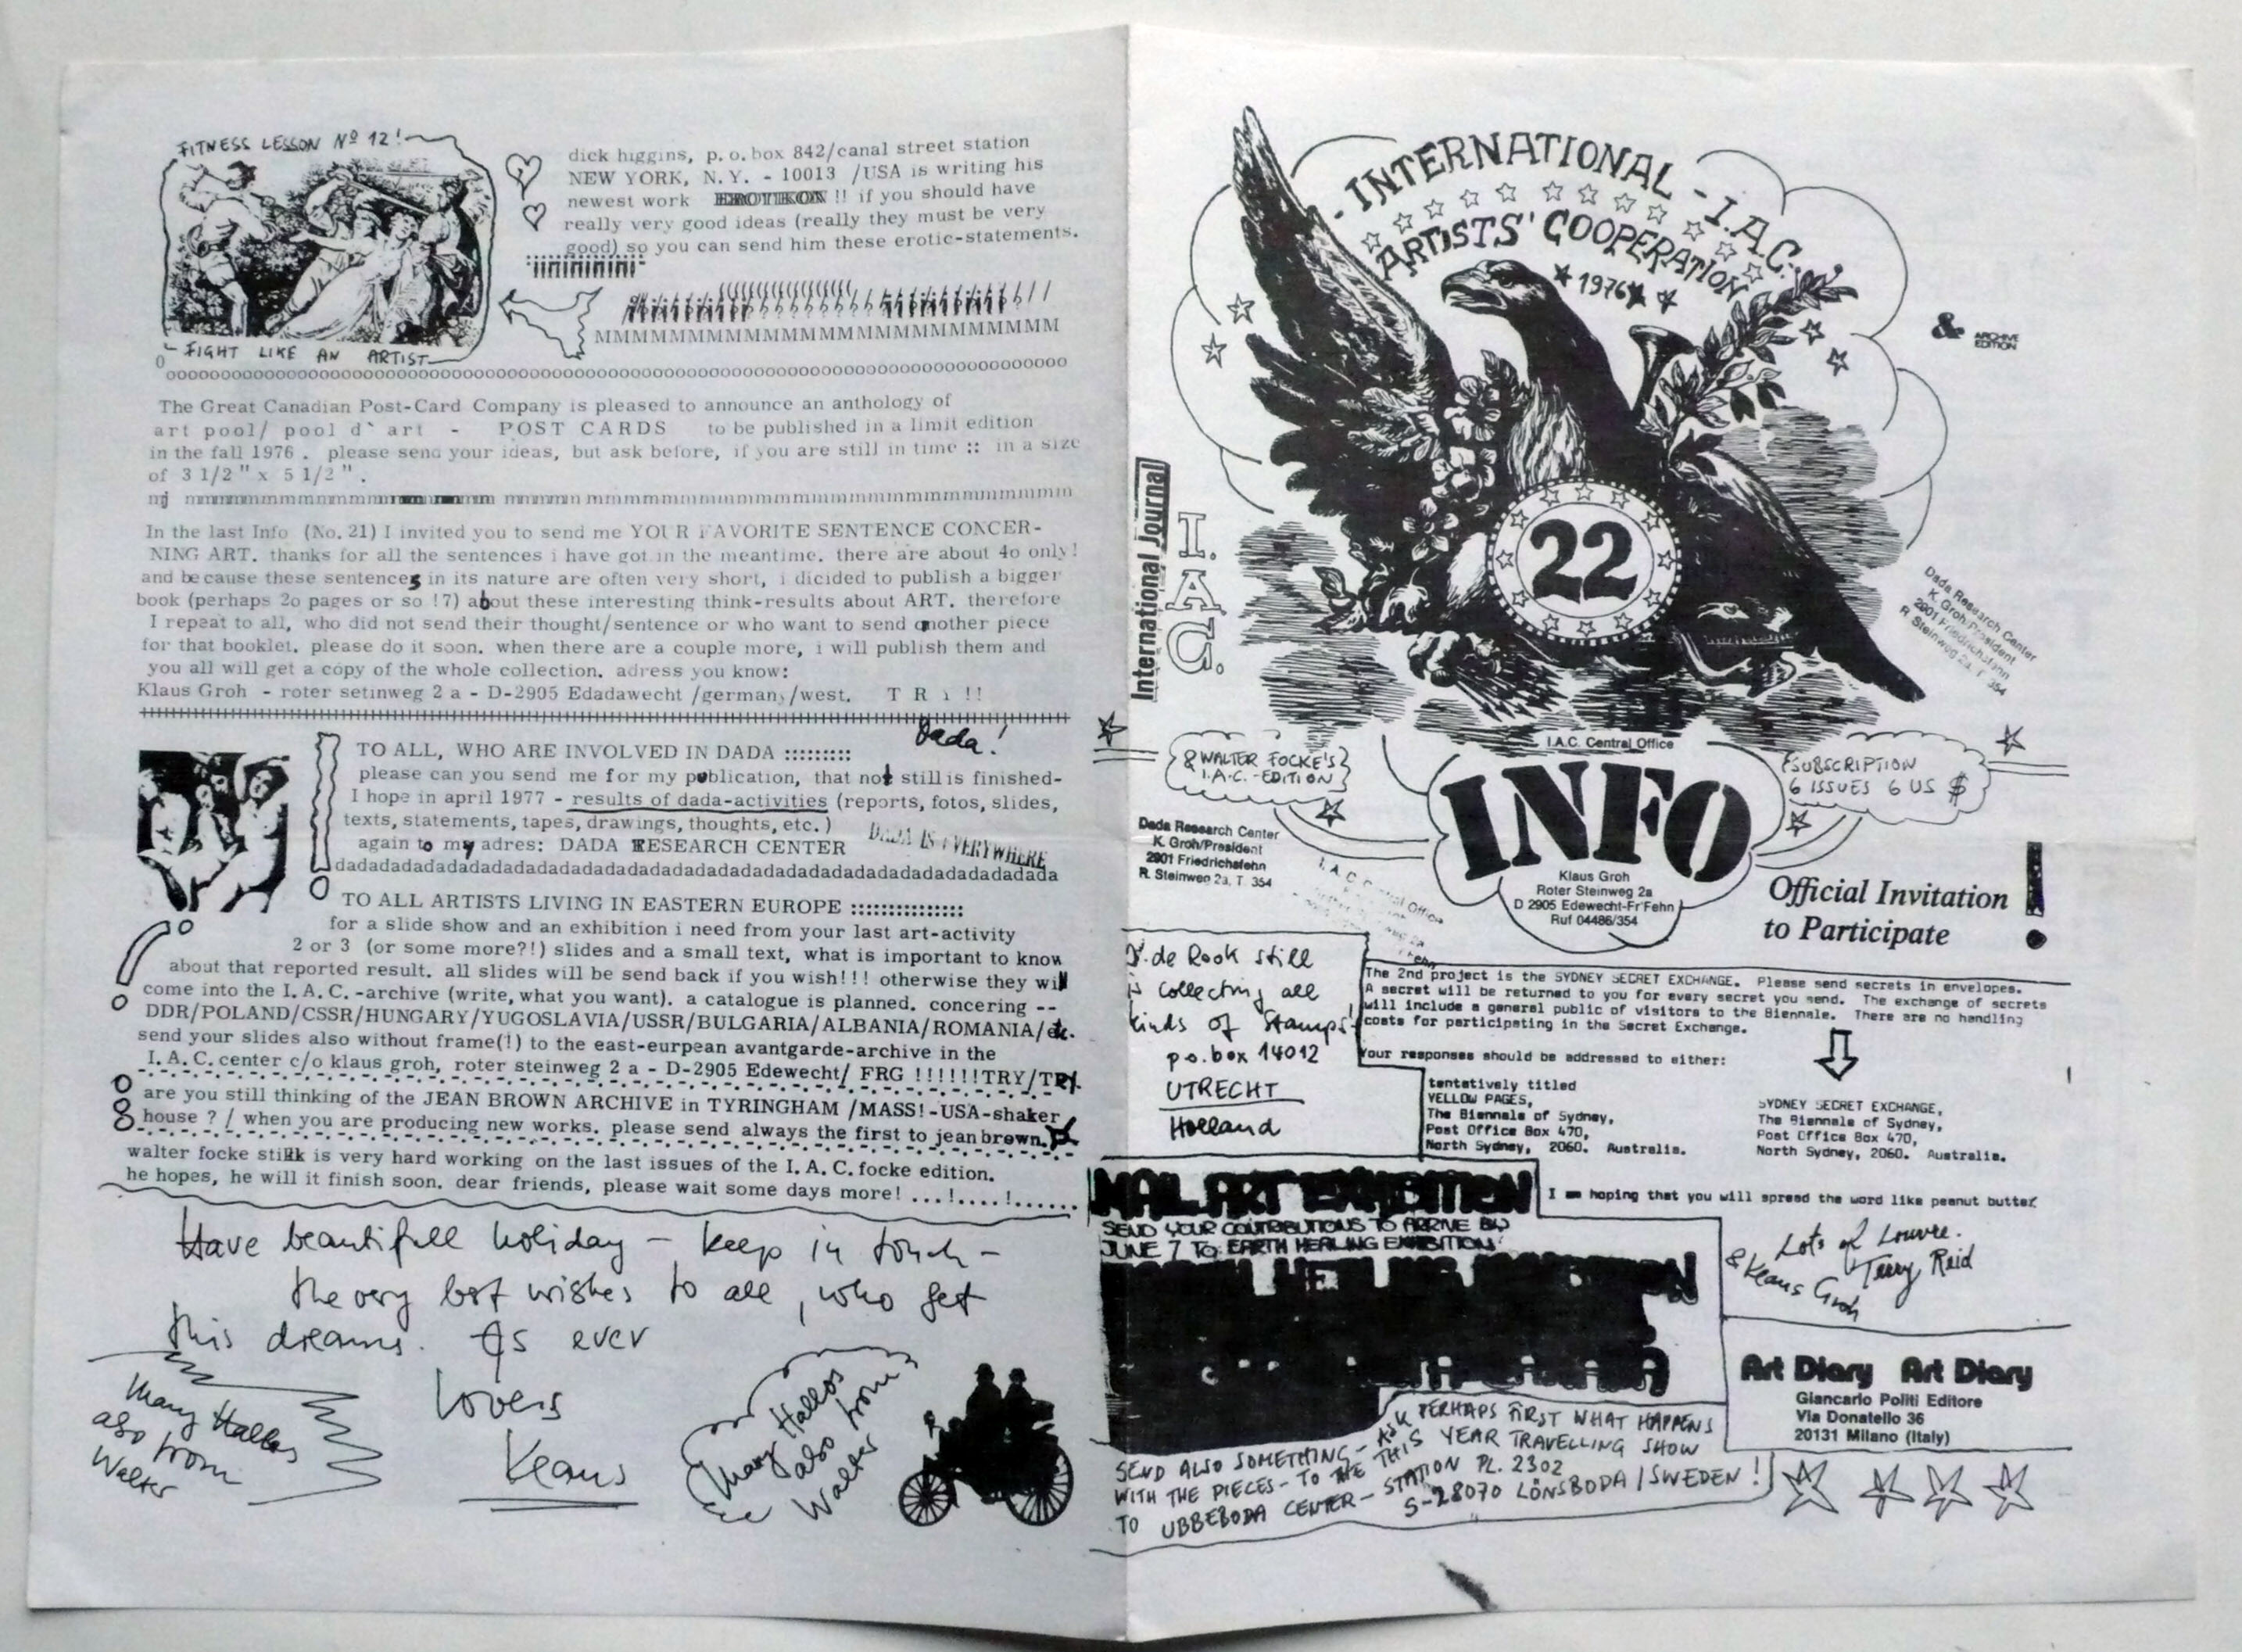 FITNESS LESSON Nº 12!
FIGHT LIKE AN ARTIST
dick higgins, p. o. box 842/canal street station
NEW YORK, N. Y. - 10013 /USA is writing his
newest work EROTIKON !! if you should have
really very good ideas (really they must be very
good) so you can send him these erotic-statements.
MMMMMMMMMMMMMMMMMMMMMMMMM
The Great Canadian Post-Card Company is pleased to announce an anthology of
art pool/ pool d` art - POST CARDS to be published in a limit edition
in the fall 1976 . please send your ideas, but ask before, if you are still in time :: in a size
of 3 1/2 " x 5 1/2 ".
In the last Info (No. 21) I invited you to send me YOUR FAVORITE SENTENCE CONCER-
NING ART. thanks for all the sentences i have got in the meantime. there are about 4o only!
and because these sentences in its nature are often very short, i dicided to publish a bigger
book (perhaps 2o pages or so !7) about these interesting think-results about ART. therefore
I repeat to all, who did not send their thought/sentence or who want to send another piece
for that booklet. please do it soon. when there are a couple more, i will publish them and
you all will get a copy of the whole collection. adress you know:
Klaus Groh - roter setinweg 2 a - D-2905 Edadawecht /germany/west. T R Y !!
++++++++++++++++++++++++++++++++
Dada!
TO ALL, WHO ARE INVOLVED IN DADA :::::::::
please can you send me for my publication, that not still is finished-
I hope in april 1977 - results of dada-activities (reports, fotos, slides,
texts, statements, tapes, drawings, thoughts, etc. )
again to my adres: DADA RESEARCH CENTER
DADA IS EVERYWHERE
dadadadadadadadadadadadadadadadadadadadadadadadadadadadadadadadada
TO ALL ARTISTS LIVING IN EASTERN EUROPE ::::::::::::::
for a slide show and an exhibition i need from your last art-activity
2 or 3 (or some more?!) slides and a small text, what is important to know
about that reported result. all slides will be send back if you wish!!! otherwise they will
come into the I. A. C. -archive (write, what you want). a catalogue is planned. concering --
DDR/POLAND/CSSR/HUNGARY/YUGOSLAVIA/USSR/BULGARIA/ALBANIA/ROMANIA/etc.
send your slides also without frame(!) to the east-eurpean avantgarde-archive in the
I. A. C. center c/o klaus groh, roter steinweg 2 a - D-2905 Edewecht/ FRG !!!!!!TRY/TRY
are you still thinking of the JEAN BROWN ARCHIVE in TYRINGHAM /MASS!-USA-shaker
house ? / when you are producing new works. please send always the first to jean brown.
walter focke still is very hard working on the last issues of the I. A. C. focke edition.
he hopes, he will it finish soon. dear friends, please wait some days more! ...!....!......
Have beautifull holiday – keep in touch –
the very best wishes to all, who get
this dreams. As ever
Lovers
Klaus
Many Hallos
also from
Walter
Many Hallos
also from
Walter
- INTERNATIONAL - I.A.C.
ARTISTS' COOPERATION
1976
& ARCHIVE
EDITION
22
International Journal
I.
A.
C.
Dada Research Center
K. Groh/President
2901 Friedrichsfehn
R. Steinweg 2a, T. 354
& WALTER FOCKE'S
I.A.C.-EDITION
I.A.C. Central Office
INFO
Klaus Groh
Roter Steinweg 2a
D 2905 Edewecht-Fr'Fehn
Ruf 04486/354
SUBSCRIPTION
6 ISSUES 6 US $
Dada Research Center
K. Groh/President
2901 Friedrichsfehn
R. Steinweg 2a, T. 354
I. A. C. Central Office
Official Invitation
to Participate
!
de Rook still
is collecting all
kinds of Stamps!
p.o. box 14012
UTRECHT
Holland
The 2nd project is the SYDNEY SECRET EXCHANGE. Please send secrets in envelopes.
A secret will be returned to you for every secret you send. The exchange of secrets
will include a general public of visitors to the Biennale. There are no handling
costs for participating in the Secret Exchange.
Your responses should be addressed to either:
tentatively titled
YELLOW PAGES,
The Biennale of Sydney,
Post Office Box 470,
North Sydney, 2060. Australia.
SYDNEY SECRET EXCHANGE,
The Biennale of Sydney,
Post Office Box 470,
North Sydney, 2060. Australia.
I am hoping that you will spread the word like peanut butter
Lots of Louvre.
Terry Reid
& Klaus Groh
MAIL ART EXHIBITION
SEND YOUR CONTRIBUTIONS TO ARRIVE BY
JUNE 7 TO EARTH HEALING EXHIBITION
Art Diary Art Diary
Giancarlo Politi Editore
Via Donatello 36
20131 Milano (Italy)
SEND ALSO SOMETHING – ASK PERHAPS FIRST WHAT HAPPENS
WITH THE PIECES – TO THE THIS YEAR TRAVELLING SHOW
TO UBBEBODA CENTER – STATION PL. 2302
S-28070 LÖNSBODA / SWEDEN !